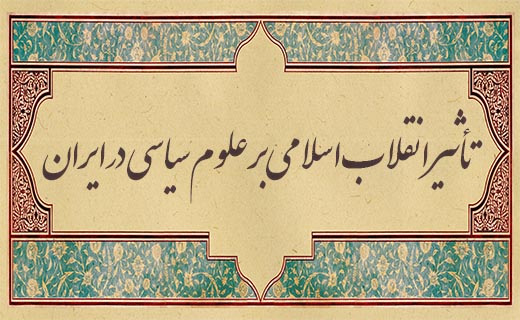 تأثیر انقلاب اسلامی بر علوم سیاسی در ایران